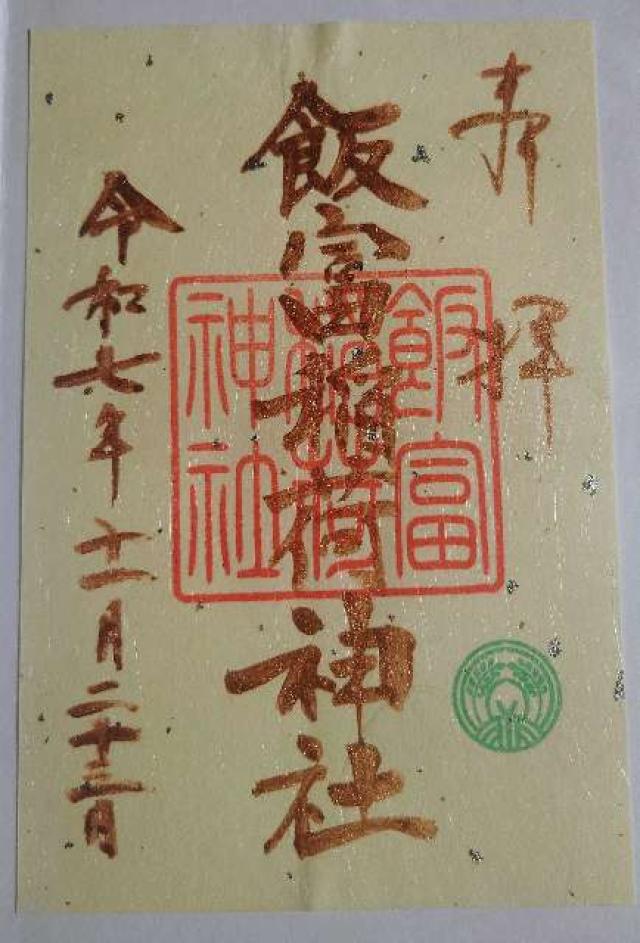 奉拝
飯富稲荷神社
飯富稲荷神社
令和七年十一月二十三日